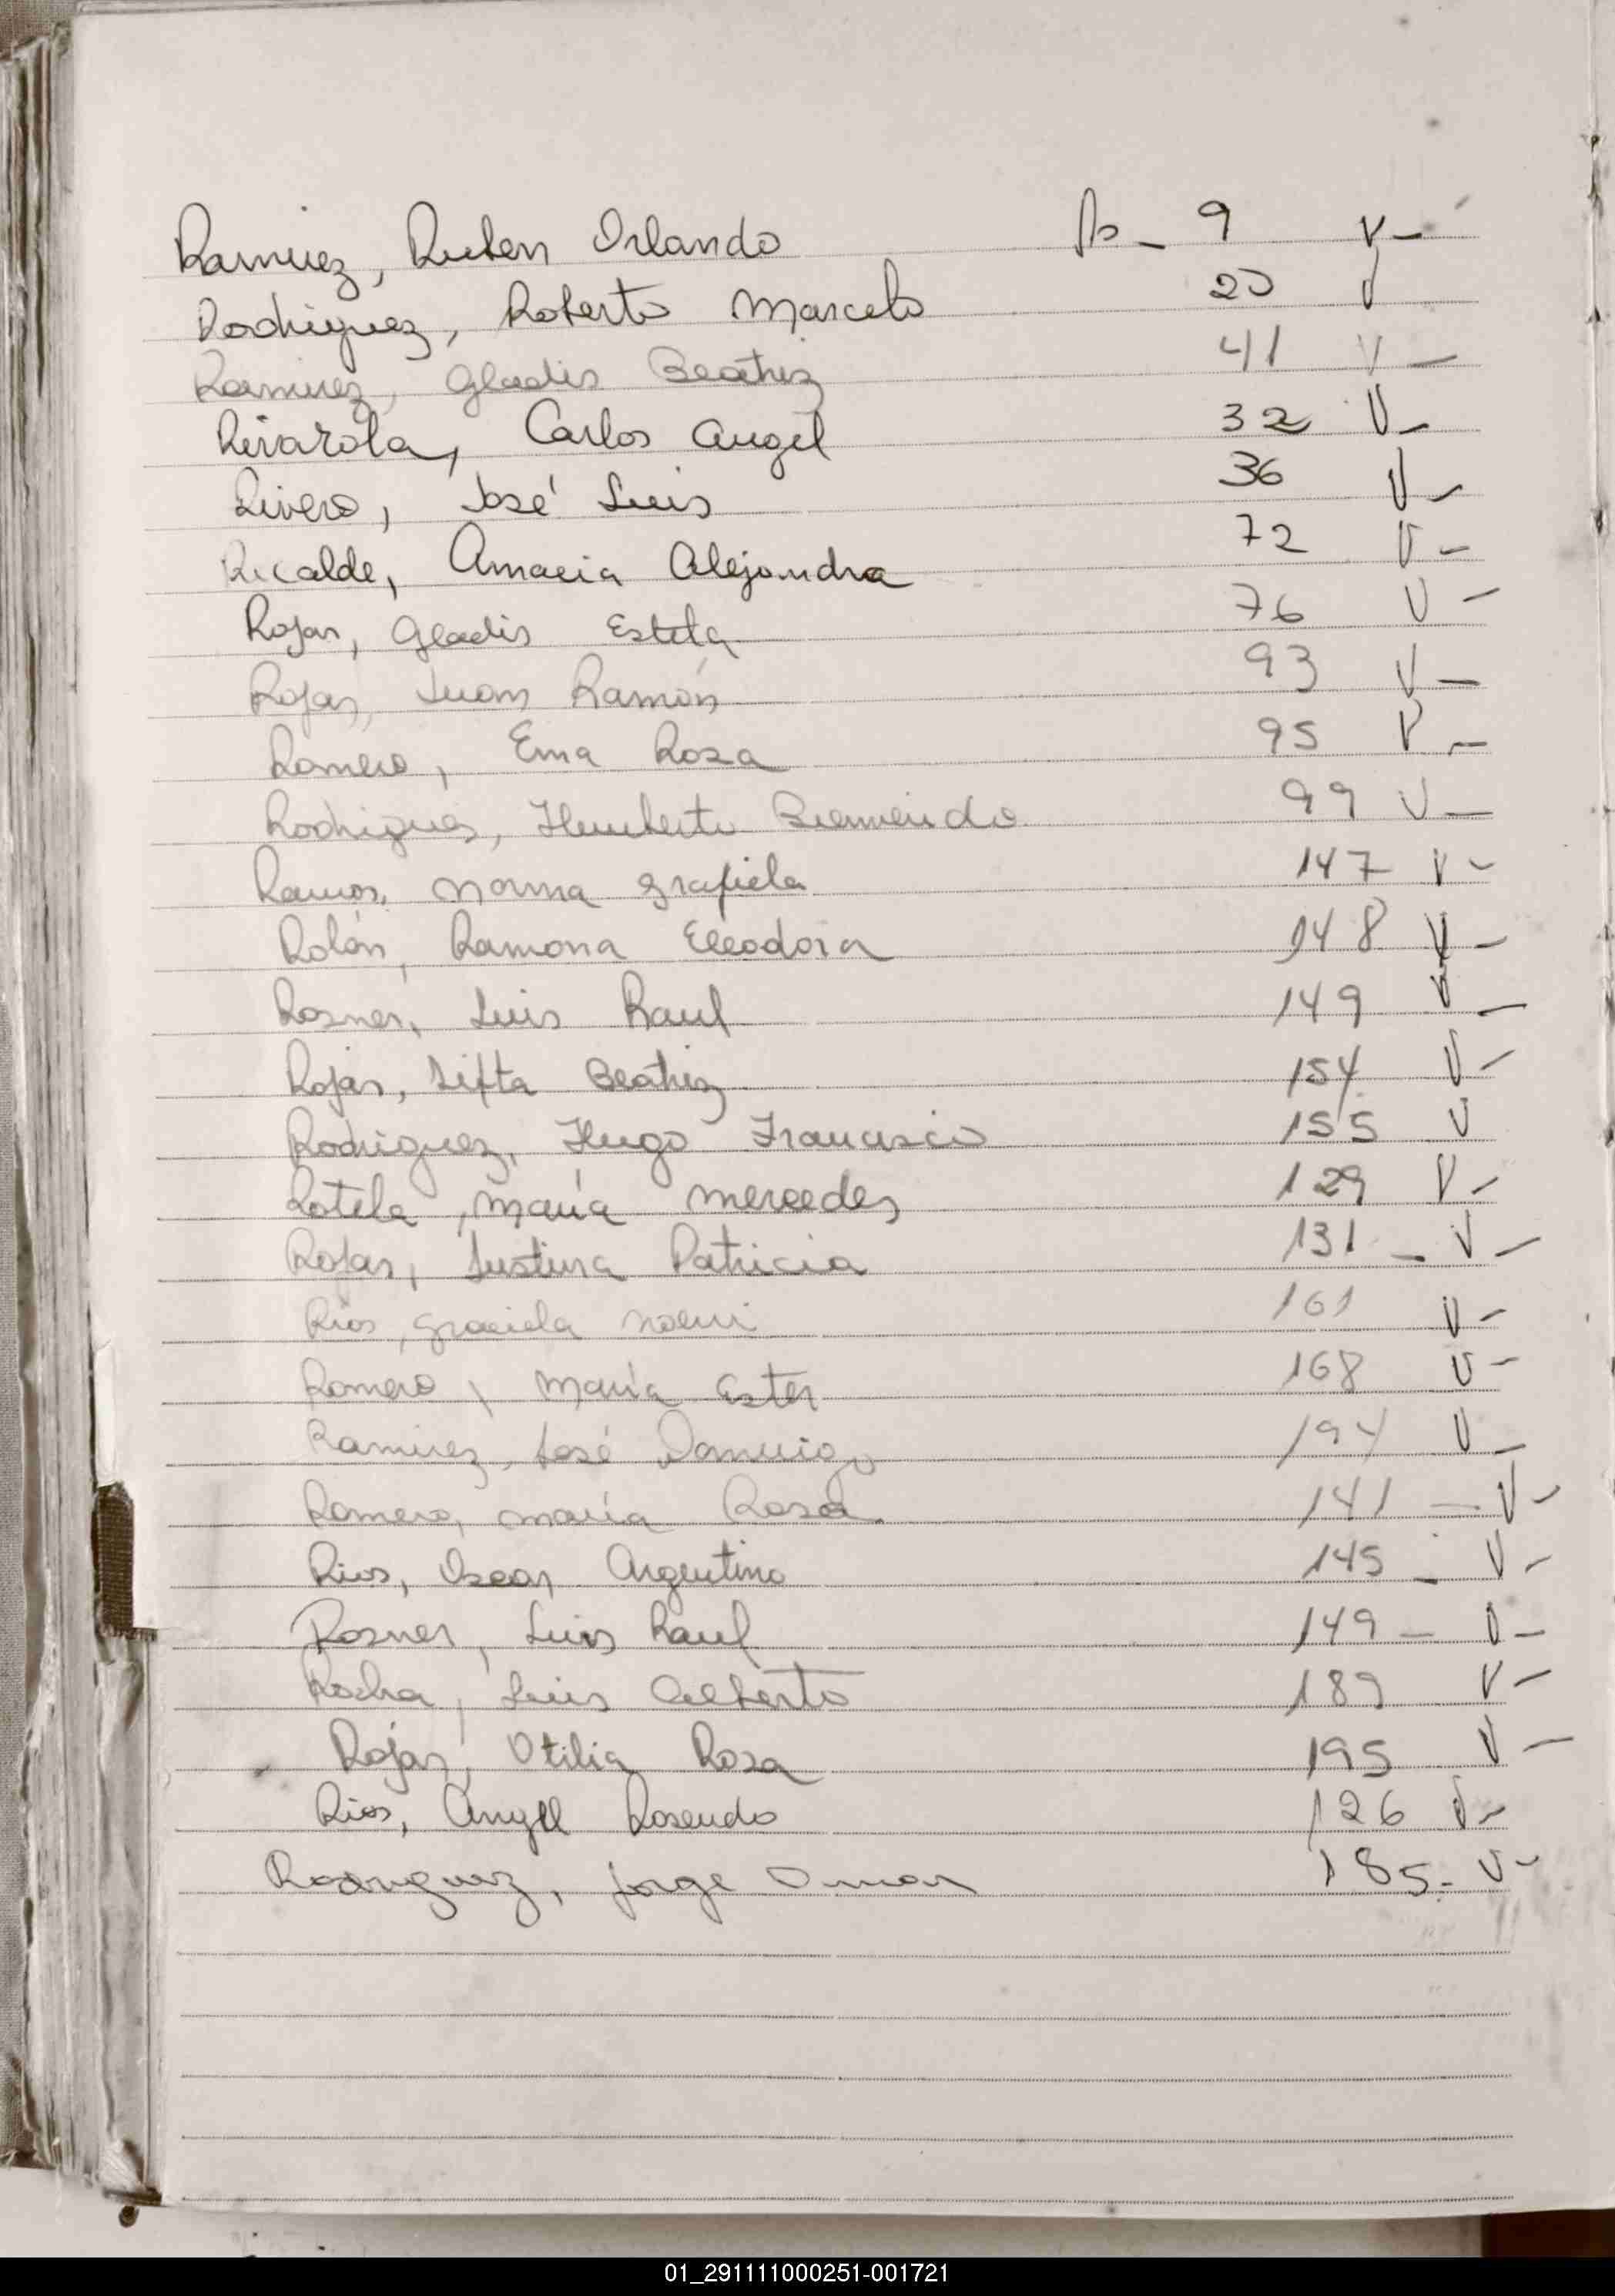 Ramirez, Ruben Orlando Fs_ 9 V-
Rodriguez, Roberto Marcelo 20 V
Ramirez, Gladis Beatriz 41 V-
Rivarola, Carlos Angel 32 V-
Rivero, José Luis 36 V-
Recalde, Amacia Alejandra 72 V-
Rojas, Gladis Estela 76 V-
Rojas, Juan Ramón 93 V-
Romero, Ema Rosa 95 V-
Rodrigues, Humberto Bienvenido 99 V-
Ramos, Norma Grafiela 147 V-
Rolón, Ramona Eleodora 148 V-
Rosner, Luis Raul 149 V-
Rojas, Sixta Beatriz 154 V-
Rodriguez, Hugo Francisco 155 V
Rotela, María Mercedes 129 V-
Rojas, Justina Patricia 131 - V-
Rios, Graciela Noemi 161 V-
Romero, María Ester 168 V-
Ramirez, José Domingo 194 V-
Romero, María Rosa 141 - V-
Rios, Oscar Argentino 145 - V-
Rosner, Luis Raul 149 - V-
Rocha, Luis Alberto 189 V-
Rojas, Otilia Rosa 195 V-
Rios, Angel Rosendo 126 V-
Rodriguez, Jorge Omar 185- V-
01_291111000251-001721